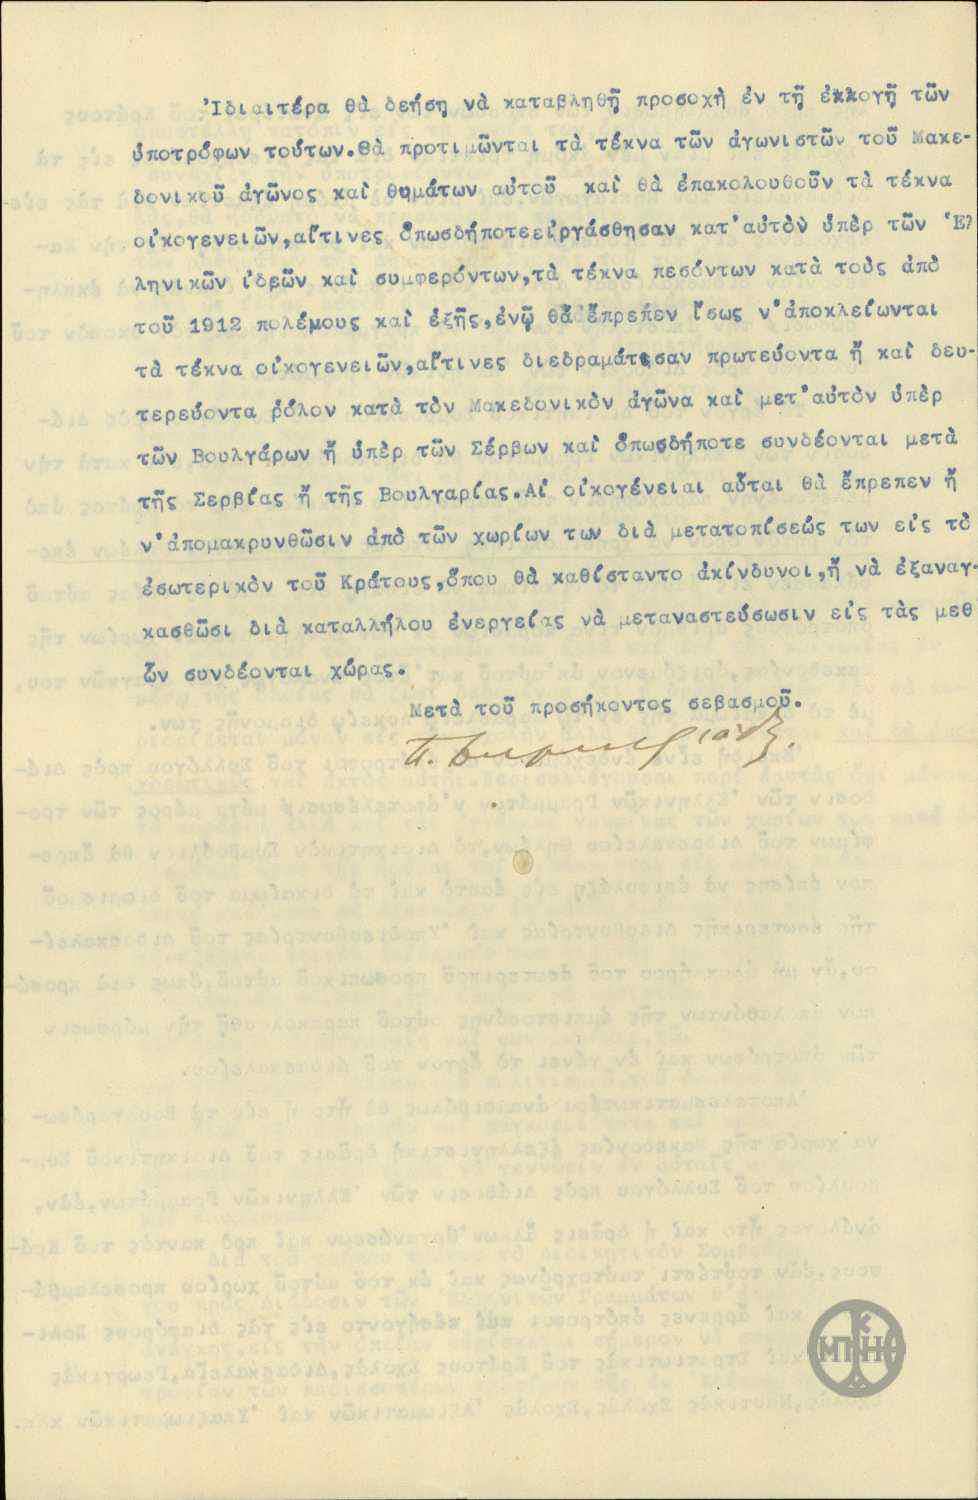 Ἰδιαιτέρα θὰ δεήσῃ νὰ καταβληθῇ προσοχὴ ἐν τῇ ἐκλογῇ τῶν
ὑποτρόφων τούτων.Θὰ προτιμῶνται τὰ τέκνα τῶν ἀγωνιστῶν τοῦ Μακε-
δονικοῦ ἀγῶνος καὶ θυμάτων αὐτοῦ καὶ θὰ ἐπακολουθοῦν τὰ τέκνα
οἰκογενειῶν,αἵτινες ὁπωσδήποτεεἰργάσθησαν κατ'αὐτὸν ὑπὲρ τῶν Ἑλ
ληνικῶν ἰδεῶν καὶ συμφερόντων,τὰ τέκνα πεσόντων κατὰ τοὺς ἀπὸ
τοῦ 1912 πολέμους καὶ ἑξῆς,ἐνῷ θὰ ἔπρεπεν ἴσως ν'ἀποκλείωνται
τὰ τέκνα οἰκογενειῶν,αἵτινες διεδραμάτισαν πρωτεύοντα ἢ καὶ δευ-
τερεύοντα ῥόλον κατὰ τὸν Μακεδονικὸν ἀγῶνα καὶ μετ'αὐτὸν ὑπὲρ
τῶν Βουλγάρων ἢ ὑπὲρ τῶν Σέρβων καὶ ὁπωσδήποτε συνδέονται μετὰ
τῆς Σερβίας ἢ τῆς Βουλγαρίας.Αἱ οἰκογένειαι αὗται θὰ ἔπρεπεν ἢ
ν'ἀπομακρυνθῶσιν ἀπὸ τῶν χωρίων των διὰ μετατοπίσεώς των εἰς τὸ
ἐσωτερικὸν τοῦ Κράτους,ὅπου θὰ καθίσταντο ἀκίνδυνοι,ἢ νὰ ἐξαναγ-
κασθῶσι διὰ καταλλήλου ἐνεργείας νὰ μεταναστεύσωσιν εἰς τὰς μεθ
ὧν συνδέονται χώρας.
Μετὰ τοῦ προσήκοντος σεβασμοῦ.
ΜΠΗΘ